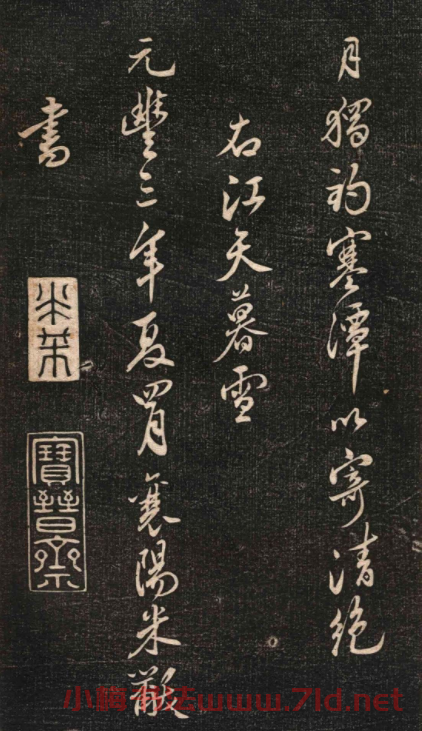 月獨釣寒潭以寄清絶
右江天暮雪
元豐三年夏四月襄陽米黻
書
米芾
寶晉齋
书法www.7ld.net